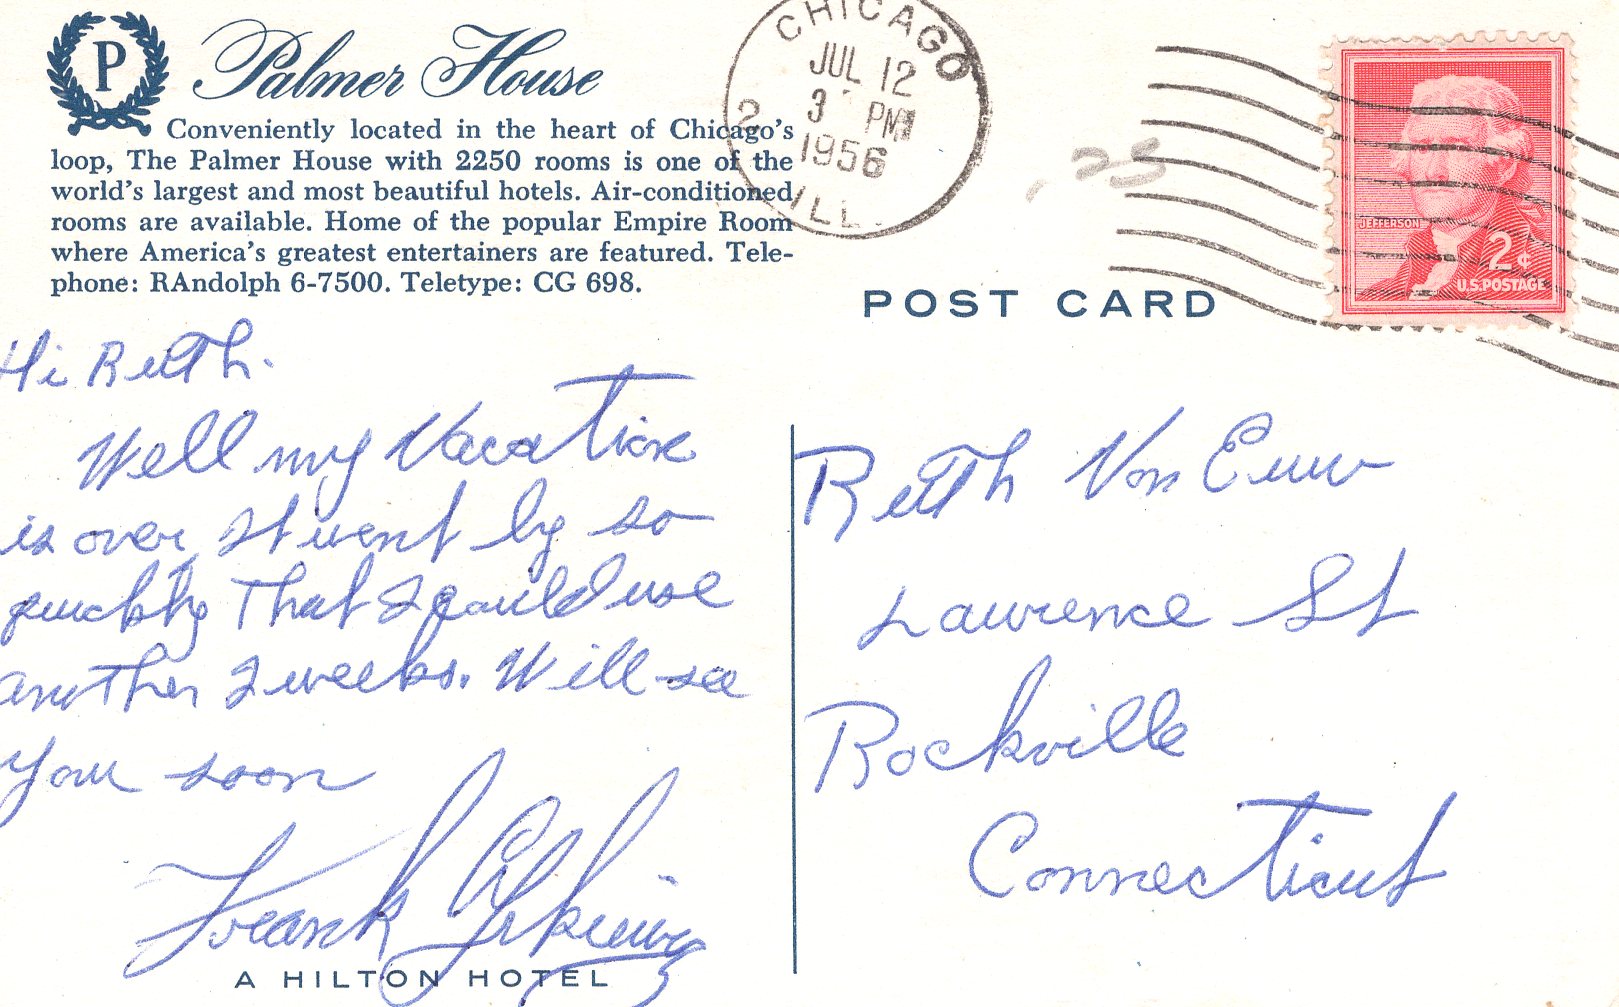 P
Palmer House
Conveniently located in the heart of Chicago's
loop, The Palmer House with 2250 rooms is one of the
world's largest and most beautiful hotels. Air-conditioned
rooms are available. Home of the popular Empire Room
where America's greatest entertainers are featured. Tele-
phone: RAndolph 6-7500. Teletype: CG 698.
CHICAGO
JUL 12
3 PM
1956
2
ILL.
.25
JEFFERSON
2¢
U.S. POSTAGE
POST CARD
Hi Ruth.
Well my Vacation
is over, It went by so
quickly That I could use
another 2 weeks. Will see
you soon
Frank
A HILTON HOTEL
Ruth Von Euw
Lawrence St
Rockville
Connecticut